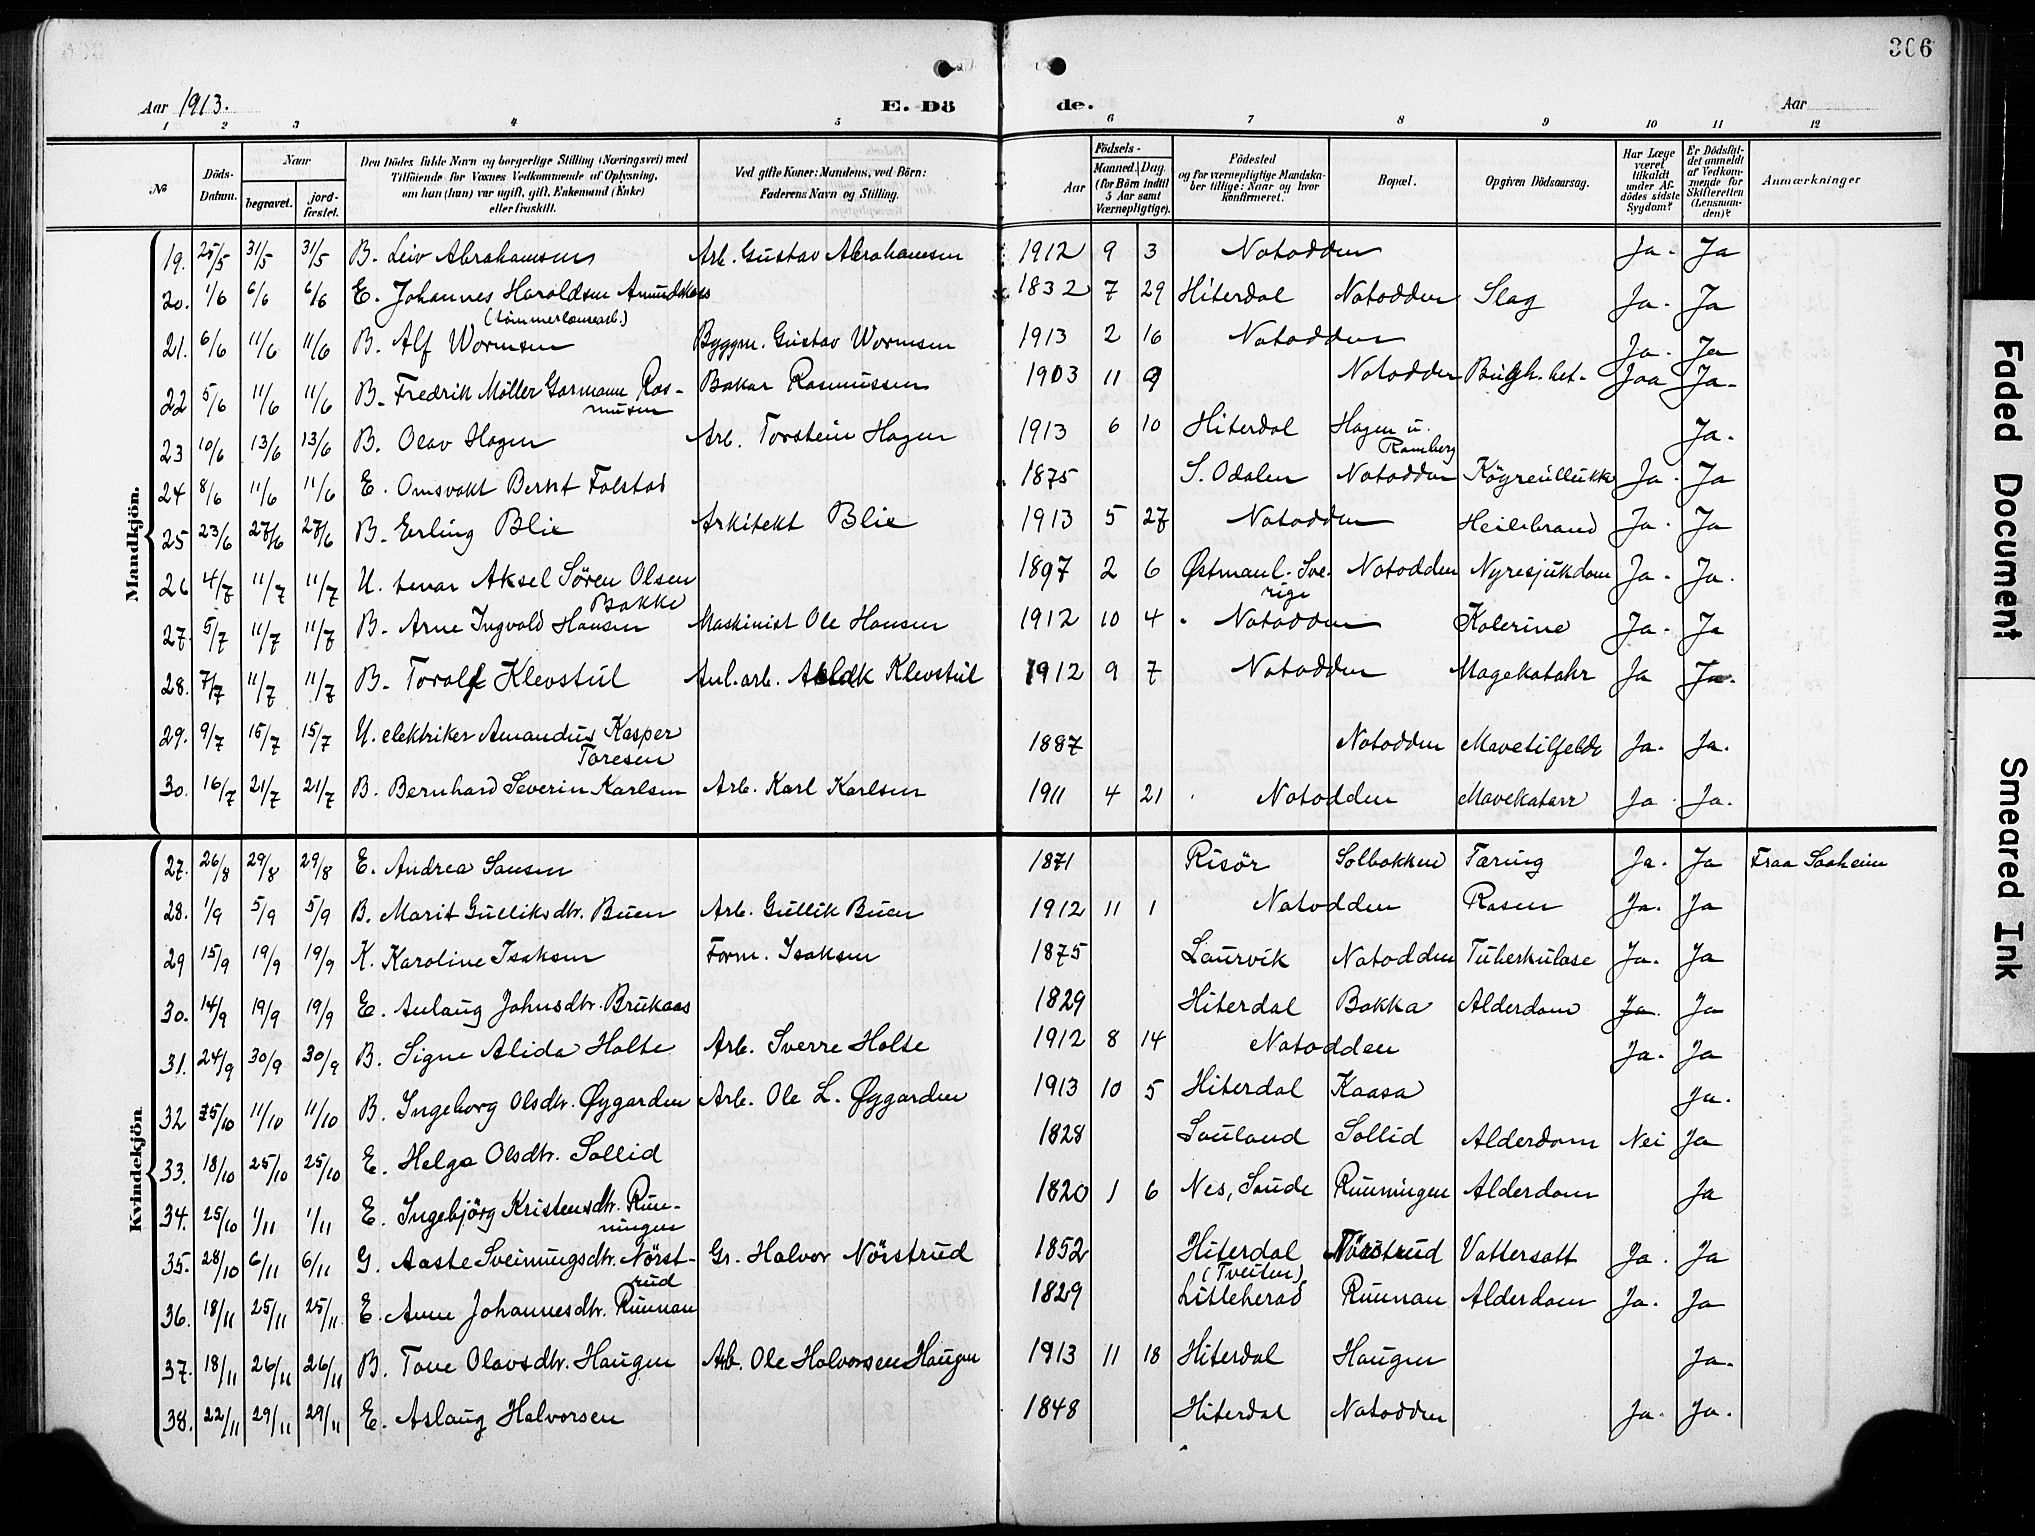 306
Aar 1913.
E. Döde.
Aar
1 2 3 4 5 6 7 8 9 10 11 12
No
Döds-Datum.
Naar
begravet.
jord-fæstet.
Den Dödes fulde Navn og borgerlige Stilling (Næringsvei) med
Tilföiende for Voxnes Vedkommende af Oplysning,
om han (hun) var ugift, gift, Enkemand (Enke)
eller fraskilt.
Ved gifte Koner: Mandens, ved Börn:
Faderens Navn og Stilling.
Födsels-
Aar
Maaned. Dag.
(for Börn indtil
5 Aar samt
Værnepligtige).
Födested
og for værnepligtige Mandska-
ber tillige: Naar og hvor
konfirmeret.
Bopæl.
Opgiven Dödsaarsag.
Har Læge
været
tilkaldt
under Af-
dödes sidste
Sygdom?
Er Dödsfal-
det anmeldt
af Vedkom-
mende for
Skifteretten
(Lensman-
den)?
Anmærkninger
Mandkjön.
19. 25/5 31/5 31/5 B. Leiv Abrahamsen Arb. Gustav Abrahamsen 1912 9 3 Notodden Ja. Ja
20. 1/6 6/6 6/6 E. Johannes Haroldsen Amundskaas 1832 7 29 Hiterdal Notodden Slag Ja. Ja
21. 6/6 11/6 11/6 B. Alf Wormsen Byggm. Gustav Wormsen 1913 2 16 Notodden Ja. Ja
22 5/6 11/6 11/6 B. Fredrik Möller Gormann Ras-
musen Bakar Rasmussen 1903 11 9 Notodden Jaa Ja.
23 10/6 13/6 13/6 B. Olav Hagen Arb. Torstein Hagen 1913 6 10 Hiterdal Hagen u.
Ramberg Ja.
24 8/6 11/6 11/6 E. Omsvakt Bernt Folstad 1875 S. Odalen Notodden Köyreullukke Ja. Ja
25 23/6 27/6 27/6 B. Erling Blie Arkitekt Blie 1913 5 27 Notodden Heilebrand Ja. Ja
26 4/7 11/7 11/7 U. tenar Aksel Sören Olsen
Bakke 1897 2 6 Østmanl. Sve-
rige Notodden Nyresjukdom Ja. Ja.
27. 5/7 11/7 11/7 B. Arne Ingvald Hansen Maskinist Ole Hansen 1912 10 4 Notodden Kolerine Ja. Ja
28. 7/7 11/7 11/7 B. Toralf Klevstul Anl.arb. Klevstul 1912 9 7 Notodden Magekatahr Ja Ja.
29. 9/7 15/7 15/7 U. elektriker Amandus Kasper
Toresen 1887 Notodden Mavetilfelde Ja. Ja.
30. 16/7 21/7 21/7 B. Bernhard Severin Karlsen Arb. Karl Karlsen 1911 4 21 Notodden Mavekatarr Ja Ja.
Kvindekjön.
27. 26/8 29/8 29/8 E. Andrea Sansen 1871 Risör Solbakken Tæring Ja. Ja Fraa Saaheim
28. 1/9 5/9 5/9 B. Marit Gulliksdtr. Buen Arb. Gullik Buen 1912 11 1 Notodden Rosen Ja. Ja
29 15/9 19/9 19/9 K. Karoline Isaksen Form. Isaksen 1875 Laurvik Notodden Tuberkulose Ja. Ja
30. 14/9 19/9 19/9 E. Anlaug Johnsdtr. Brukaas 1829 Hiterdal Bakka Alderdom Ja Ja
31. 24/9 30/9 30/9 B. Signe Alida Holte Arb. Sverre Holte 1912 8 14 Notodden Ja. Ja
32 5/10 11/10 11/10 B. Ingeborg Olsdtr. Øygarden Arb. Ole L. Øygarden 1913 10 5 Hiterdal Kaasa Ja.
33. 18/10 25/10 25/10 E. Helga Olsdtr. Sollid 1828 Sauland Sollid Alderdom Nei Ja
34. 25/10 1/11 1/11 E. Ingebjörg Kristensdtr. Run-
ningen 1820 1 6 Nes, Saude Runningen Alderdom Ja
35. 28/10 6/11 6/11 G. Aaste Sveinungsdtr. Nörst-
rud Gr. Halvor Nörstrud 1852 Hiterdal
(Tveiten) Nörstrud Vattersott Ja. Ja
36. 18/11 25/11 25/11 E. Anne Johannesdtr. Runnan 1829 Litleherad Runnan Alderdom Ja. Ja
37. 18/11 26/11 26/11 B. Tone Olavsdtr. Haugen Arb. Ole Halvorsen Haugen 1913 11 18 Hiterdal Haugen Ja.
38. 22/11 29/11 29/11 E. Aslaug Halvorsen 1848 Hiterdal Notodden Ja. Ja.
Faded Document
Smeared Ink